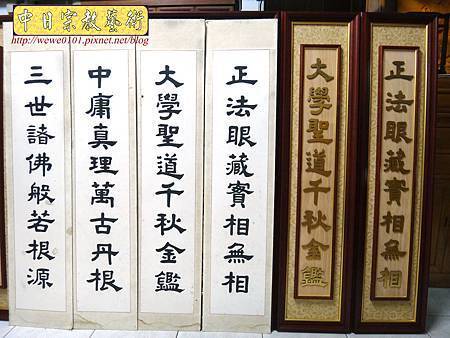 中日宗教藝術
http://wewe0101.pixnet.net/blog
正法眼藏實相無相
大學聖道千秋金鑑
正法眼藏實相無相
大學聖道千秋金鑑
中庸真理萬古丹根
三世諸佛般若根源